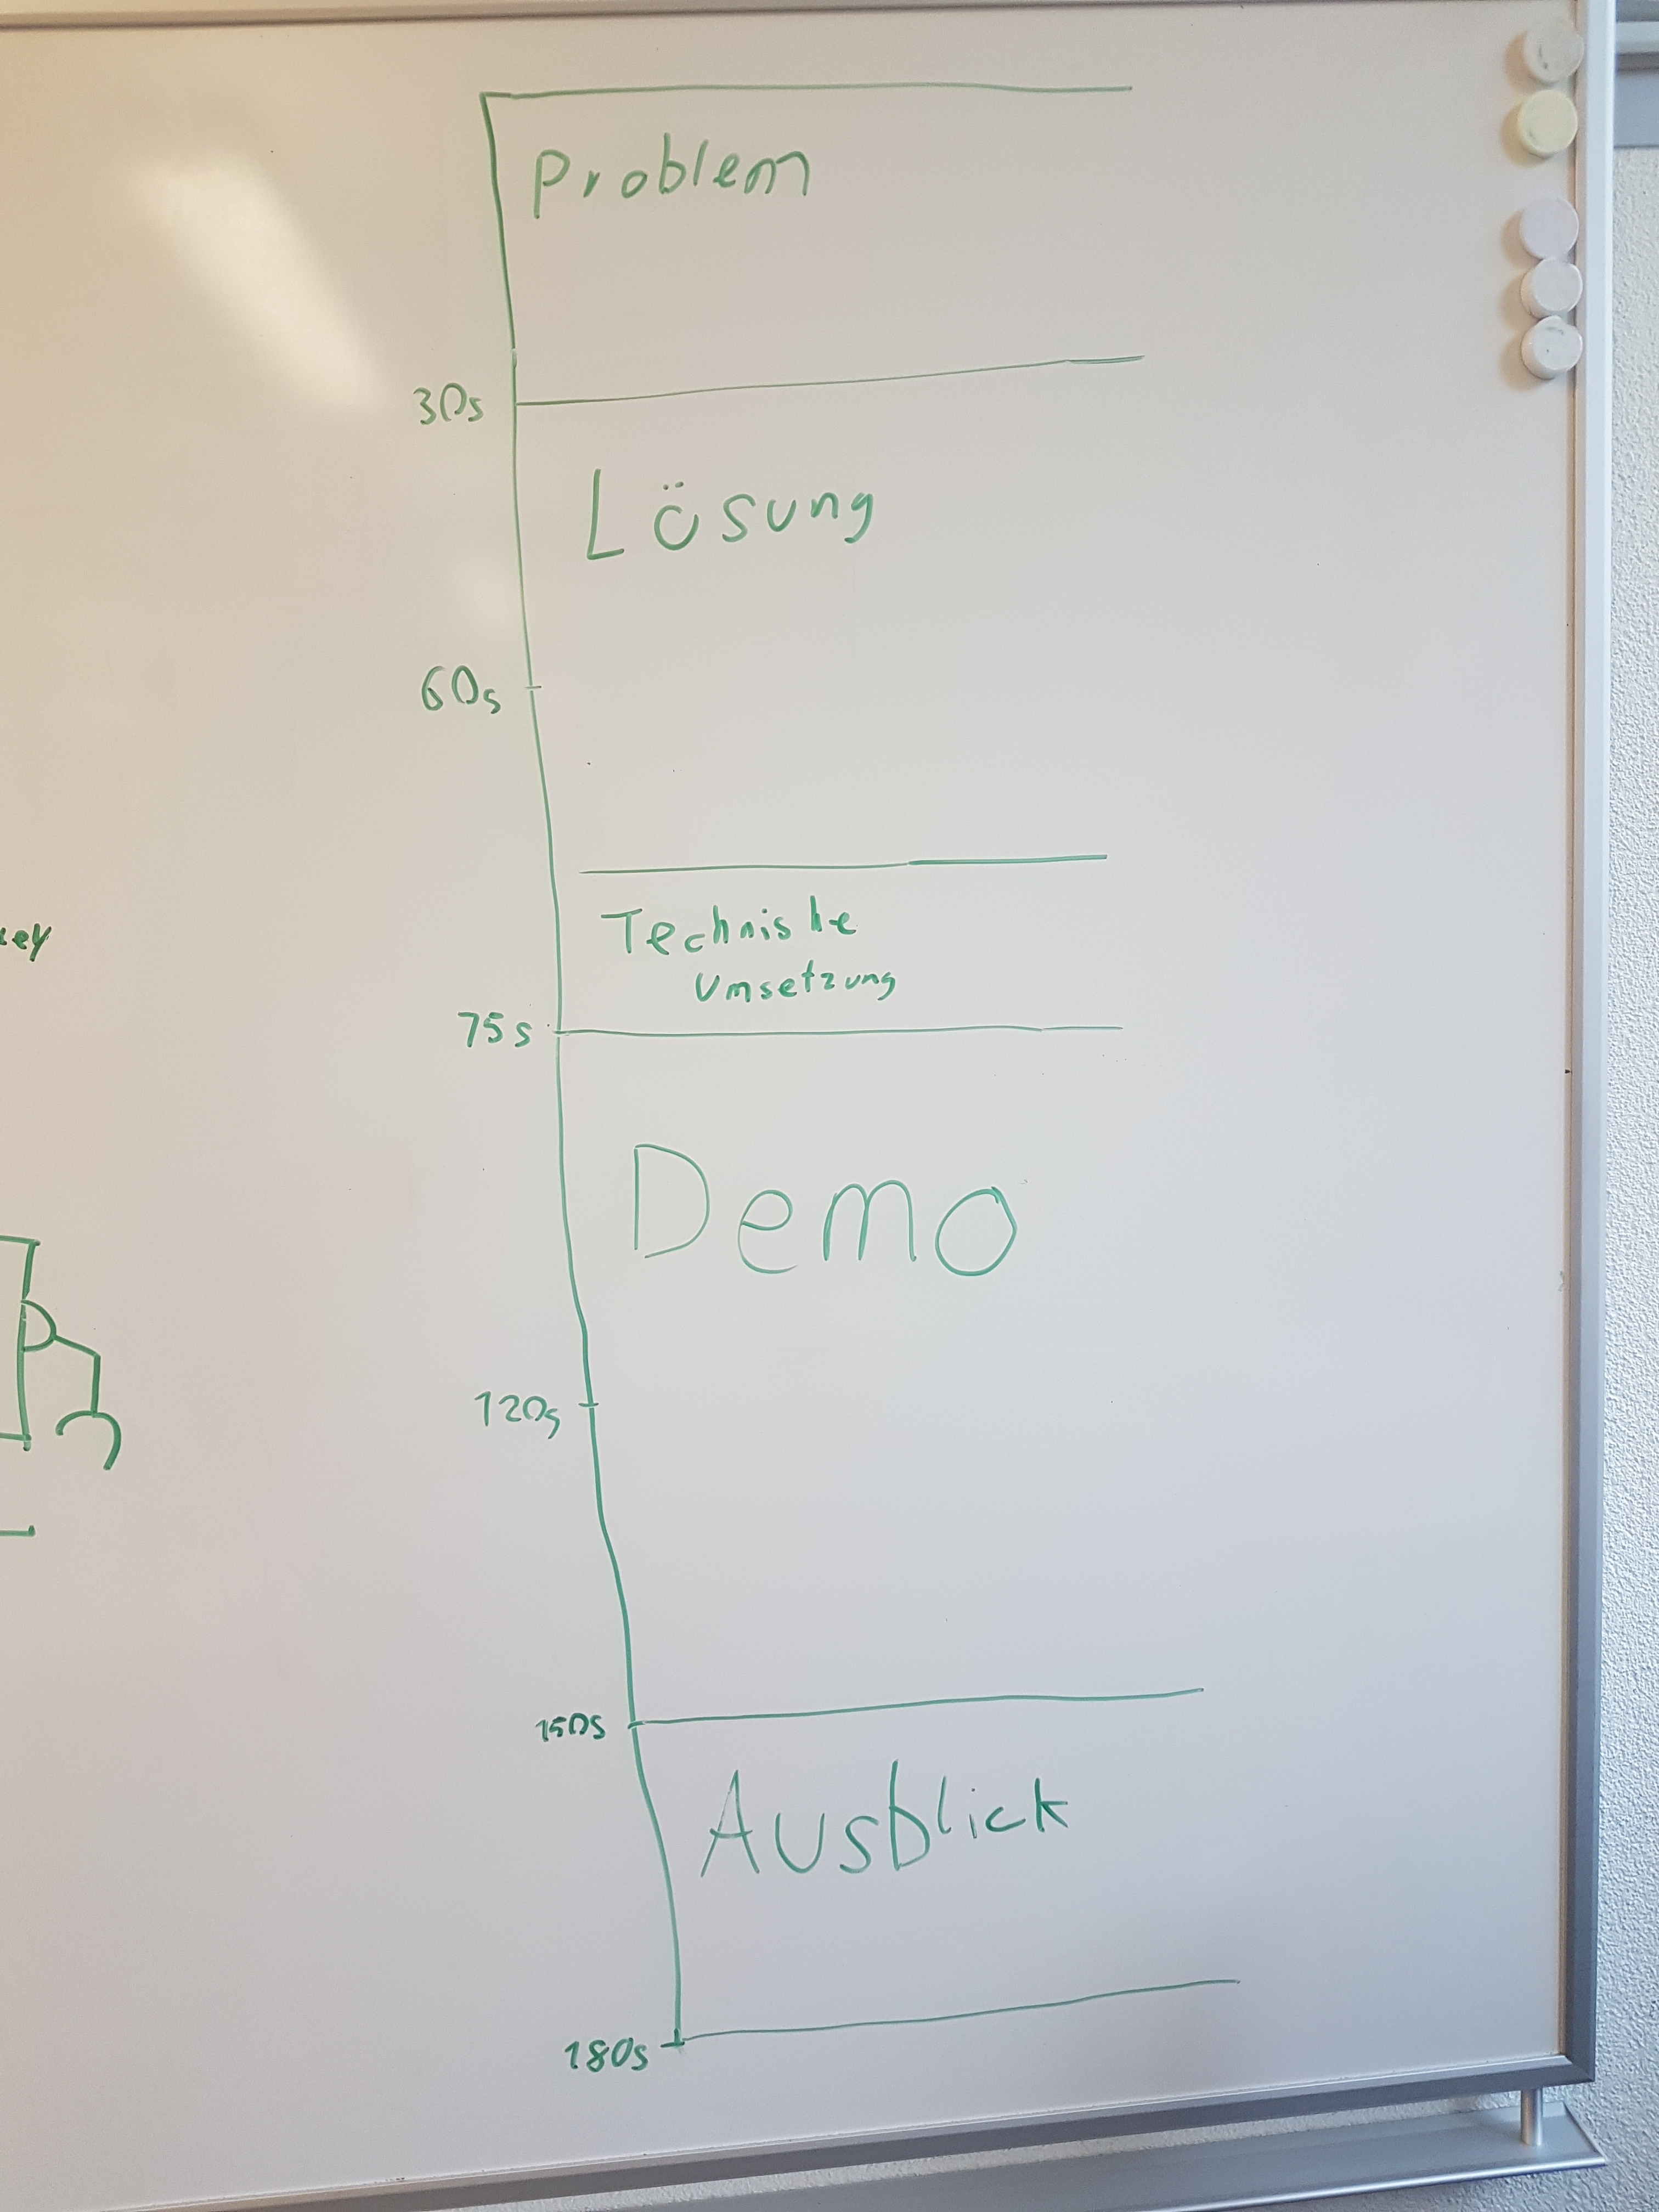 Problem
30s
Lösung
60s
Technishe
Umsetzung
75s
Demo
120s
150s
Ausblick
180s